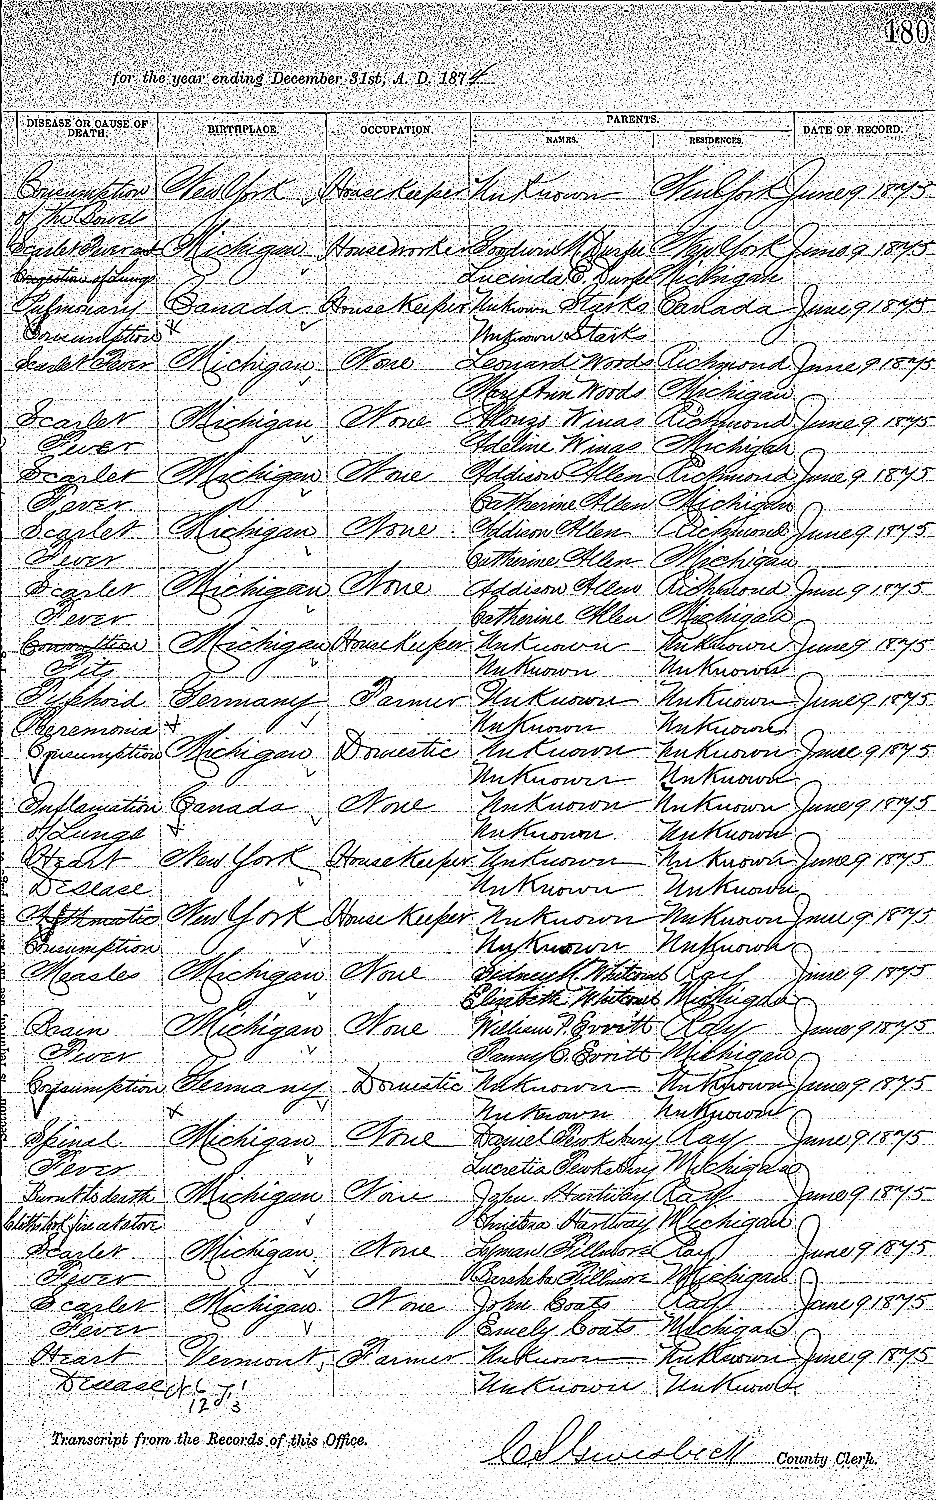 180
for the year ending December 31st, A. D. 1874
DISEASE OR CAUSE OF DEATH. BIRTHPLACE. OCCUPATION. PARENTS. NAMES. RESIDENCES. DATE OF RECORD.
Consumption New York HouseKeeper UnKnown New York June 9 1875
of the Bowels
Scarlet Fever and Michigan Houseworker Goodwin Durfee New York June 9 1875
Congestion of Lungs Lucinda E. Durfee Michigan
Pulmonary Canada HouseKeeper UnKnown Starks Canada June 9 1875
Consumption x UnKnown Starks
Scarlet Fever Michigan None Leonard Woods Richmond June 9 1875
Mary Ann Woods Michigan
Scarlet Michigan None Alonzo Winas Richmond June 9 1875
Fever Adeline Winas Michigan
Scarlet Michigan None Addison Allen Richmond June 9 1875
Fever Catherine Allen Michigan
Scarlet Michigan None Addison Allen Richmond June 9 1875
Fever Catherine Allen Michigan
Scarlet Michigan None Addison Allen Richmond June 9 1875
Fever Catherine Allen Michigan
Michigan HouseKeeper UnKnown UnKnown June 9 1875
Fits UnKnown UnKnown
Typhoid Germany Farmer UnKnown UnKnown June 9 1875
x UnKnown UnKnown
Consumption Michigan Domestic UnKnown UnKnown June 9 1875
UnKnown UnKnown
Inflamation Canada None UnKnown UnKnown June 9 1875
of Lungs x UnKnown UnKnown
Heart New York HouseKeeper UnKnown UnKnown June 9 1875
Disease UnKnown UnKnown
New York HouseKeeper UnKnown UnKnown June 9 1875
Consumption UnKnown UnKnown
Measles Michigan None Sidney Ray June 9 1875
Elizabeth Michigan
Brain Michigan None William F. Evvitt Ray June 9 1875
Fever Fanny C. Evvitt Michigan
Consumption Germany Domestic UnKnown UnKnown June 9 1875
x UnKnown UnKnown
Spinal Michigan None Daniel Pewksbury Ray June 9 1875
Fever Lucretia Pewksbury Michigan
Burnt to death Michigan None John Hartway Ray June 9 1875
Christena Hartway Michigan
Scarlet Michigan None Lyman Fillmore Ray June 9 1875
Fever Bersheba Fillmore Michigan
Scarlet Michigan None John Coats Ray June 9 1875
Fever Emely Coats Michigan
Heart Vermont, Farmer UnKnown UnKnown June 9 1875
Disease UnKnown UnKnown
12 3
Transcript from the Records of this Office.
County Clerk.